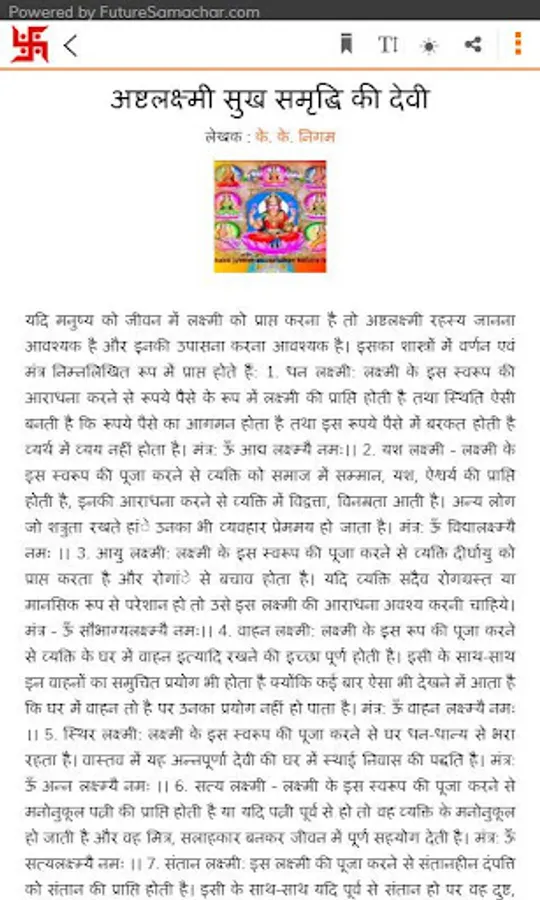 Powered by FutureSamachar.com
अष्टलक्ष्मी सुख समृद्धि की देवी
लेखक : के. के. निगम
यदि मनुष्य को जीवन में लक्ष्मी को प्राप्त करना है तो अष्टलक्ष्मी रहस्य जानना
आवश्यक है और इनकी उपासना करना आवश्यक है। इसका शास्त्रों में वर्णन एवं
मंत्र निम्नलिखित रूप में प्राप्त होते हैं: 1. धन लक्ष्मी: लक्ष्मी के इस स्वरूप की
आराधना करने से रूपये पैसे के रूप में लक्ष्मी की प्राप्ति होती है तथा स्थिति ऐसी
बनती है कि रूपये पैसे का आगमन होता है तथा इस रूपये पैसे में बरकत होती है
व्यर्थ में व्यय नहीं होता है। मंत्र: ऊँ आद्य लक्ष्म्यै नमः।। 2. यश लक्ष्मी - लक्ष्मी के
इस स्वरूप की पूजा करने से व्यक्ति को समाज में सम्मान, यश, ऐश्वर्य की प्राप्ति
होती है, इनकी आराधना करने से व्यक्ति में विद्वत्ता, विनम्रता आती है। अन्य लोग
जो शत्रुता रखते हांे उनका भी व्यवहार प्रेममय हो जाता है। मंत्र: ऊँ विद्यालक्ष्म्यै
नमः ।। 3. आयु लक्ष्मी: लक्ष्मी के इस स्वरूप की पूजा करने से व्यक्ति दीर्घायु को
प्राप्त करता है और रोगांे से बचाव होता है। यदि व्यक्ति सदैव रोगग्रस्त या
मानसिक रूप से परेशान हो तो उसे इस लक्ष्मी की आराधना अवश्य करनी चाहिये।
मंत्र - ऊँ सौभाग्यलक्ष्म्यै नमः।। 4. वाहन लक्ष्मी: लक्ष्मी के इस रूप की पूजा करने
से व्यक्ति के घर में वाहन इत्यादि रखने की इच्छा पूर्ण होती है। इसी के साथ-साथ
इन वाहनों का समुचित प्रयोग भी होता है क्योंकि कई बार ऐसा भी देखने में आता है
कि घर में वाहन तो है पर उनका प्रयोग नहीं हो पाता है। मंत्र: ऊँ वाहन लक्ष्म्यै नमः
।। 5. स्थिर लक्ष्मी: लक्ष्मी के इस स्वरूप की पूजा करने से घर धन-धान्य से भरा
रहता है। वास्तव में यह अन्नपूर्णा देवी की घर में स्थाई निवास की पद्धति है। मंत्र:
ऊँ अन्न लक्ष्म्यै नमः ।। 6. सत्य लक्ष्मी - लक्ष्मी के इस स्वरूप की पूजा करने से
मनोनुकूल पत्नी की प्राप्ति होती है या यदि पत्नी पूर्व से हो तो वह व्यक्ति के मनोनुकूल
हो जाती है और वह मित्र, सलाहकार बनकर जीवन में पूर्ण सहयोग देती है। मंत्र: ऊँ
सत्यलक्ष्म्यै नमः ।। 7. संतान लक्ष्मी: इस लक्ष्मी की पूजा करने से संतानहीन दंपत्ति
को संतान की प्राप्ति होती है। इसी के साथ-साथ यदि पूर्व से संतान हो पर वह दुष्ट,